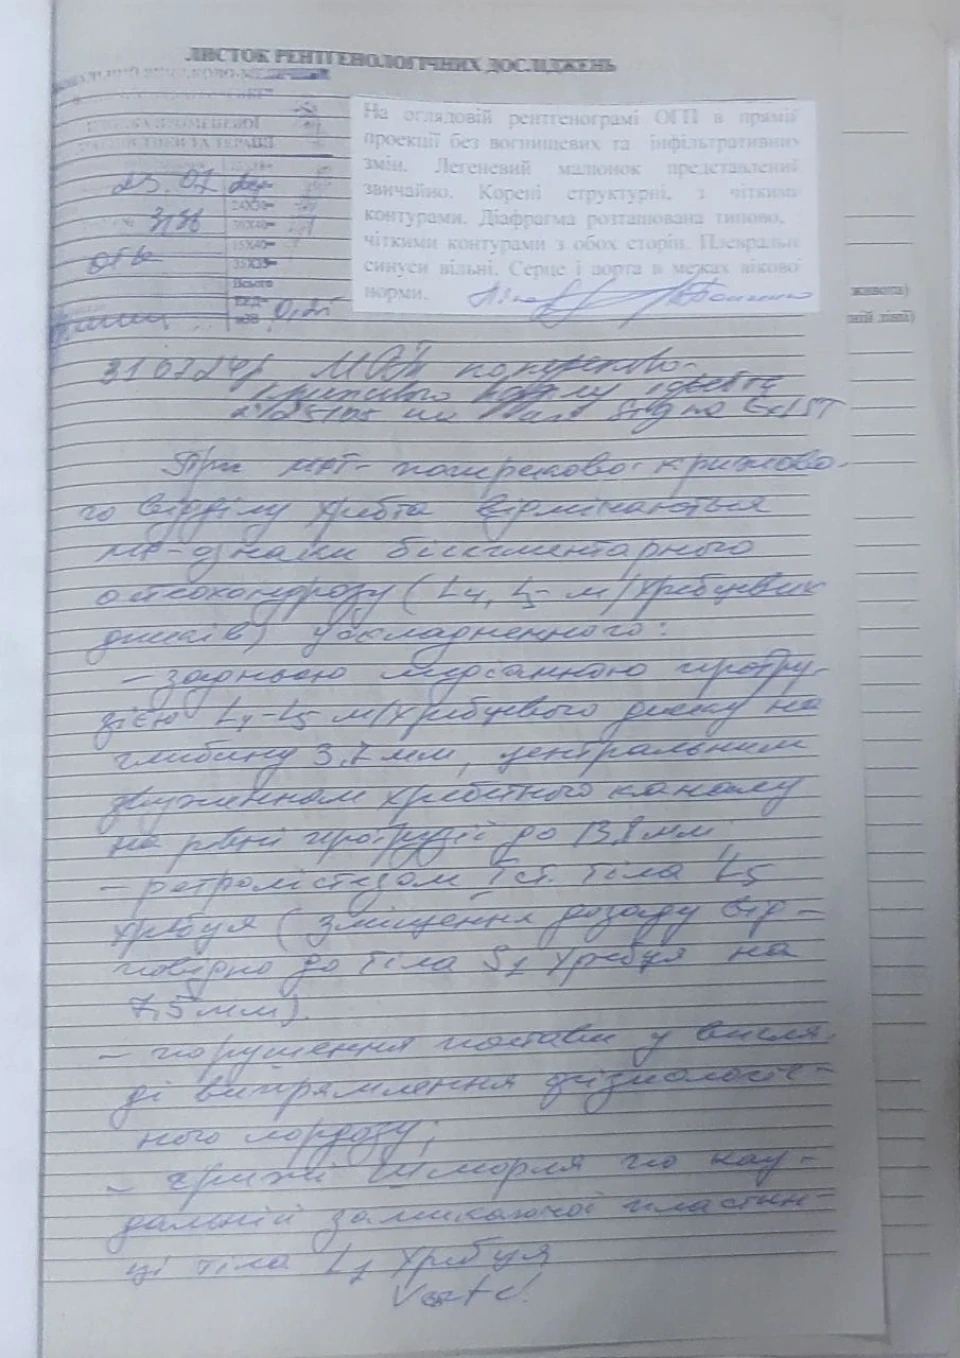 ЛИСТОК РЕНТГЕНОЛОГІЧНИХ ДОСЛІДЖЕНЬ
На оглядовій рентгенограмі ОГП в прямій
проекції без вогнищевих та інфільтративних
змін. Легеневий малюнок представлений
звичайно. Корені структурні, з чіткими
контурами. Діафрагма розташована типово,
чіткими контурами з обох сторін. Плевральні
синуси вільні. Серце і аорта в межах вікової
норми.
23.07
3186
ОГК
Всього
0,25
живота)
ній лінії)
При МРТ- попереково-крижово-
го відділу хребта відмічаються
МР-ознаки бісегментарного
остеохондрозу (L4, L5 м/хребцевих
дисків) ускладненного:
- задньою медіанною протру-
зією L4-L5 м/хребцевого диску на
глибину 3,7 мм, центральним
звуженням хребетного каналу
на рівні протрузії до 13,8 мм
- ретролістезом I ст. тіла L5
хребця (зміщення дозаду від-
повідно до тіла S1 хребця на
7,5 мм).
- порушення постави у вигля-
ді випрямлення фізіологіч-
ного лордозу;
- грижі Шморля по кау-
дальній замикаючої пластин-
ці тіла хребця